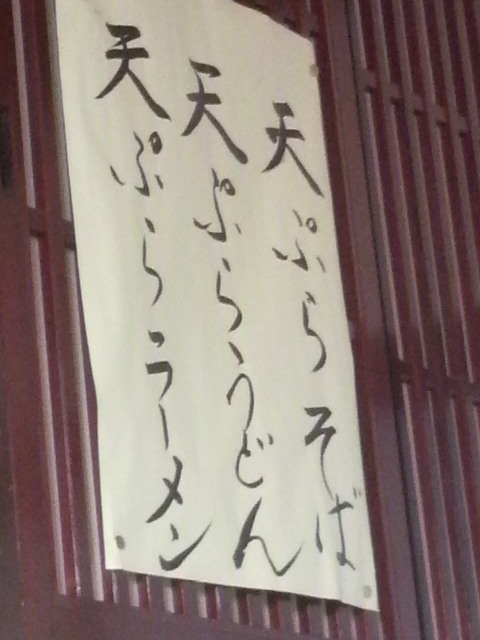 天ぷらそば
天ぷらうどん
天ぷらラーメン